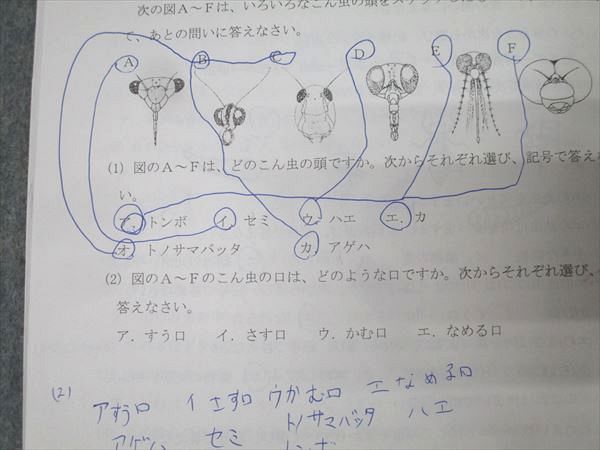 次の図A～Fは、いろいろなこん虫の頭をスケッチし
て、あとの問いに答えなさい。
A B C D E F
(1) 図のA～Fは、どのこん虫の頭ですか。次からそれぞれ選び、記号で答え
い。
ア．トンボ イ．セミ ウ．ハエ エ．カ
オ．トノサマバッタ カ．アゲハ
(2) 図のA～Fのこん虫の口は、どのような口ですか。次からそれぞれ選び、
答えなさい。
ア．すう口 イ．さす口 ウ．かむ口 エ．なめる口
(2) アすう口 イさす口 ウかむ口 エなめる口
アゲハ セミ トノサマバッタ ハエ
トンボ